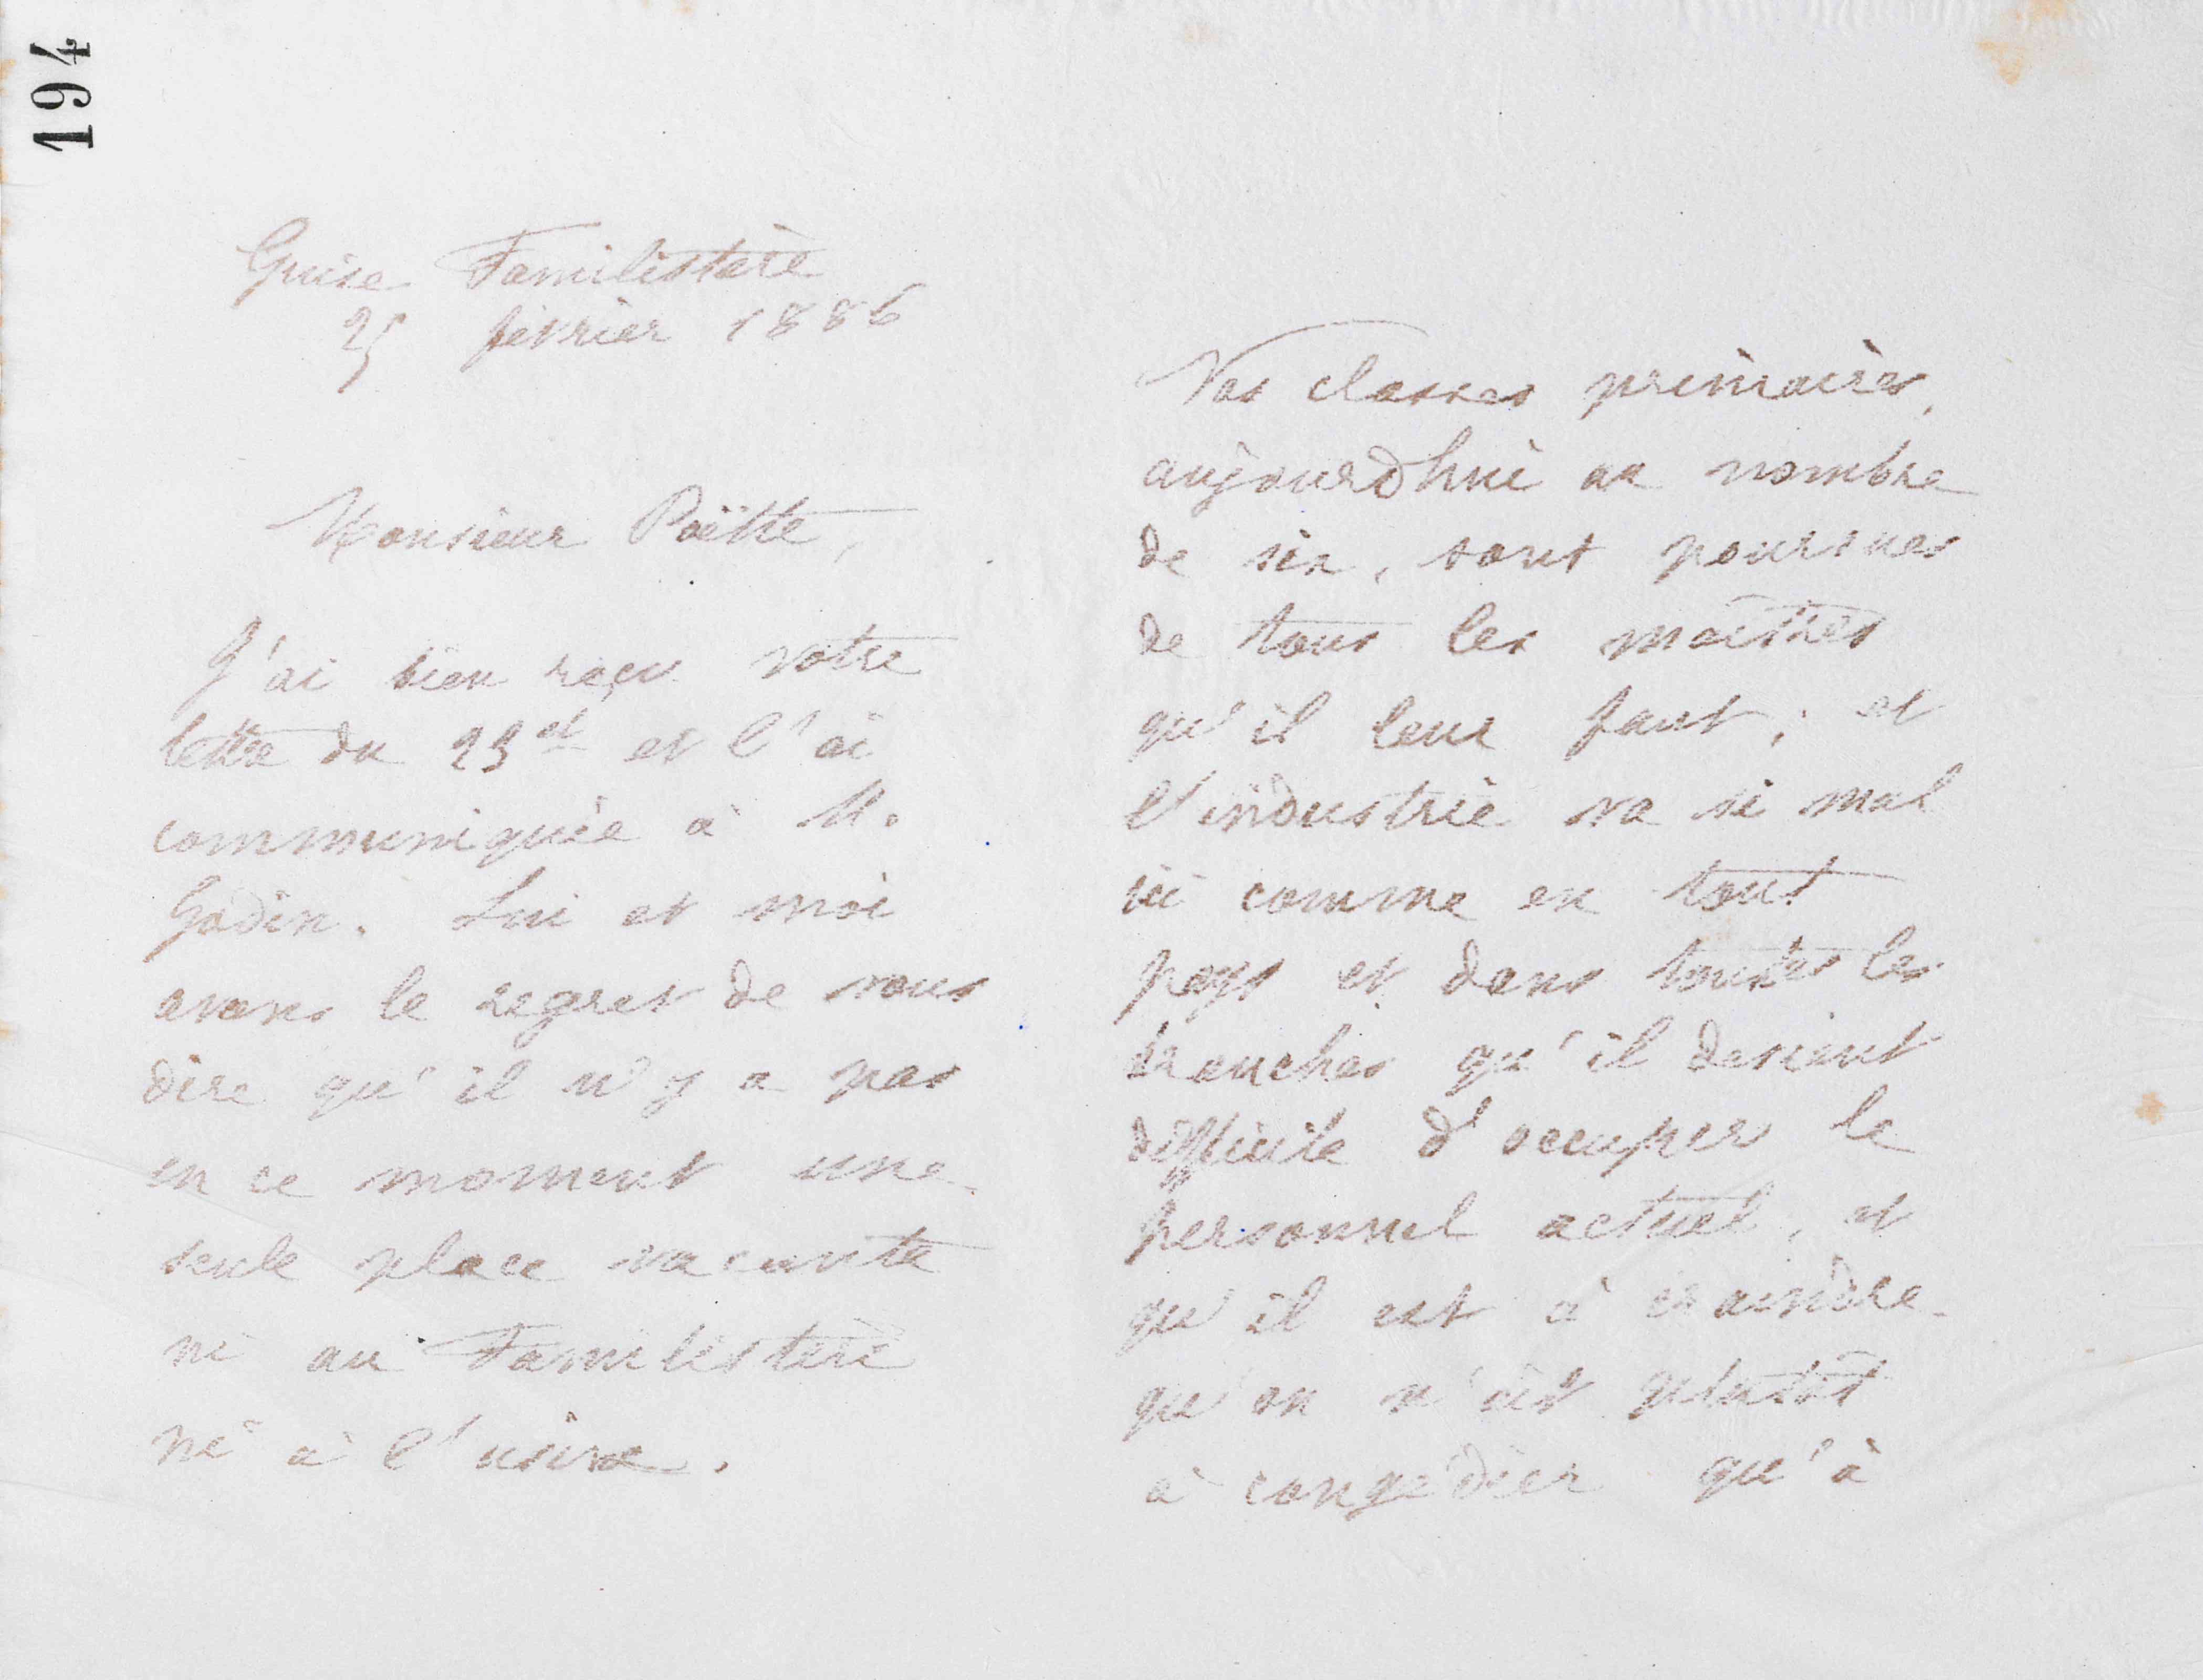 194
Guise Familistère
25 février 1886
Monsieur Poëtte,
J'ai bien reçu votre
lettre du 23 ct et l'ai
communiquée à M.
Godin. Lui et moi
avons le regret de vous
dire qu'il n'y a pas
en ce moment une
seule place vacante
ni au Familistère
ni à l'usine.
Nos classes primaires,
aujourd'hui au nombre
de six, sont pourvues
de tous les maîtres
qu'il leur faut ; et
l'industrie va si mal
ici comme en tout
pays et dans toutes les
branches qu'il devient
difficile d'occuper le
personnel actuel, et
qu'il est à craindre
qu'on n'ait plutôt
à congédier qu'à